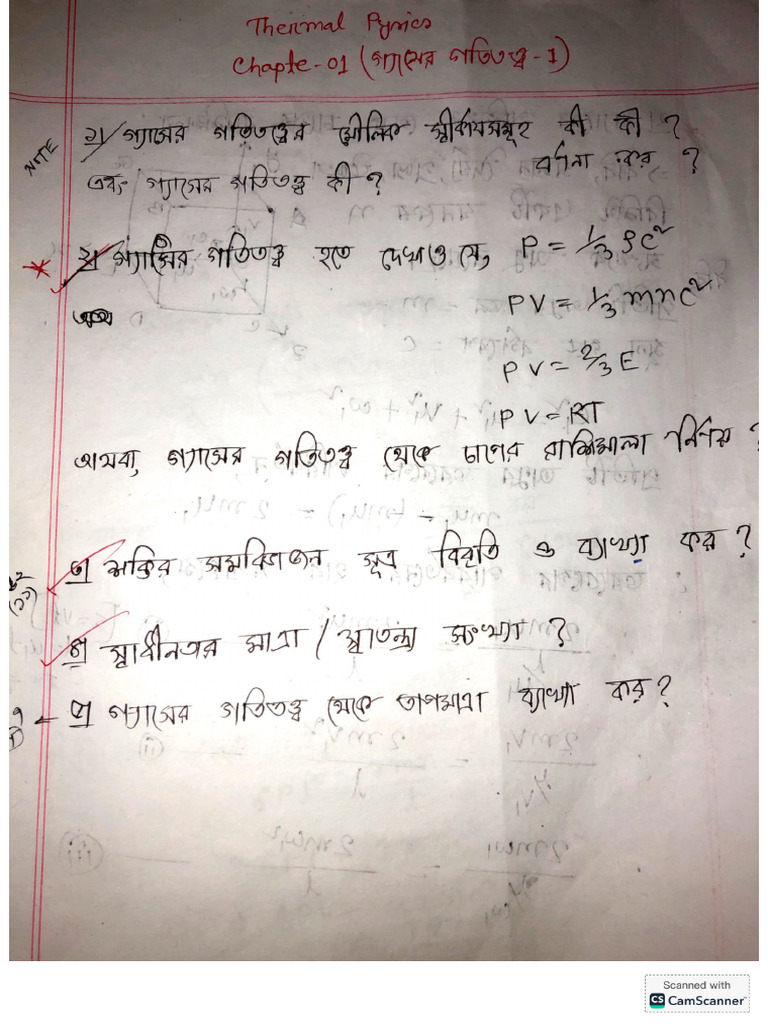 Thermal Pysics
Chapte-01 (গ্যাসের গতিতত্ত্ব-1)
NOTE ১) গ্যাসের গতিতত্ত্বের মৌলিক স্বীকার্যসমূহ কী কী ?
বর্ণনা কর ?
এবং গ্যাসের গতিতত্ত্ব কী ?
২) গ্যাসের গতিতত্ত্ব হতে দেখাও যে, P = 1/3 ρc²
PV = 1/3 mnc²
PV = 2/3 E
PV = RT
অথবা, গ্যাসের গতিতত্ত্ব থেকে চাপের রাশিমালা নির্ণয় ?
৩) শক্তির সমবিভাজন সূত্র বিবৃতি ও ব্যাখ্যা কর ?
৪) স্বাধীনতার মাত্রা / স্বাতন্ত্র্য সংখ্যা ?
৫) গ্যাসের গতিতত্ত্ব থেকে তাপমাত্রা ব্যাখ্যা কর ?
Scanned with
CS CamScanner